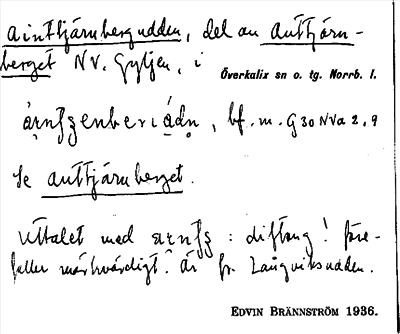 ainttjärnbergudden, del av anttjärn-
berget NV. Gyljen, i
Överkalix sn o. tg. Norrb. l.
bf. m. G30NVa2,9
Se anttjärnberget.
Uttalet med : diftong! före-
faller märkvärdigt. är fr. Långviksudden.
EDVIN BRÄNNSTRÖM 1936.